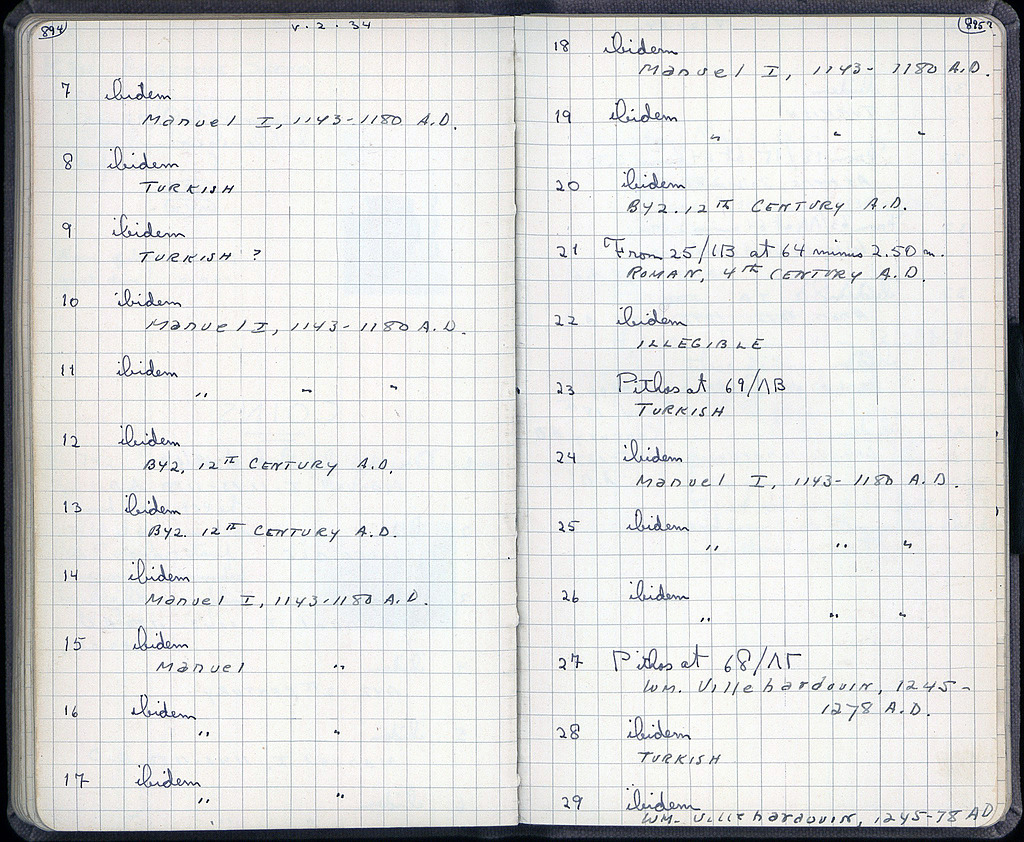 894
V. 2. 34
7 ibidem
Manuel I, 1143-1180 A.D.
8 ibidem
TURKISH
9 ibidem
TURKISH ?
10 ibidem
Manuel I, 1143-1180 A.D.
11 ibidem
" " "
12 ibidem
BYZ. 12TH CENTURY A.D.
13 ibidem
BYZ. 12TH CENTURY A.D.
14 ibidem
Manuel I, 1143-1180 A.D.
15 ibidem
Manuel "
16 ibidem
" "
17 ibidem
" "
895
18 ibidem
Manuel I, 1143-1180 A.D.
19 ibidem
" " "
20 ibidem
BYZ. 12TH CENTURY A.D.
21 From 25/ΙΒ at 64 minus 2.50 m.
ROMAN, 4TH CENTURY A.D.
22 ibidem
ILLEGIBLE
23 Pithos at 69/ΛΒ
TURKISH
24 ibidem
Manuel I, 1143-1180 A.D.
25 ibidem
" " "
26 ibidem
" " "
27 Pithos at 68/ΛΓ
WM. Villehardouin, 1245-
1278 A.D.
28 ibidem
TURKISH
29 ibidem
WM. Villehardouin, 1245-78 AD